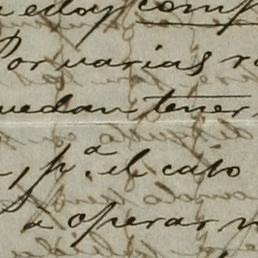 estoy comp
Por varias r
uedan tener
, p.ª el caso
a operar n